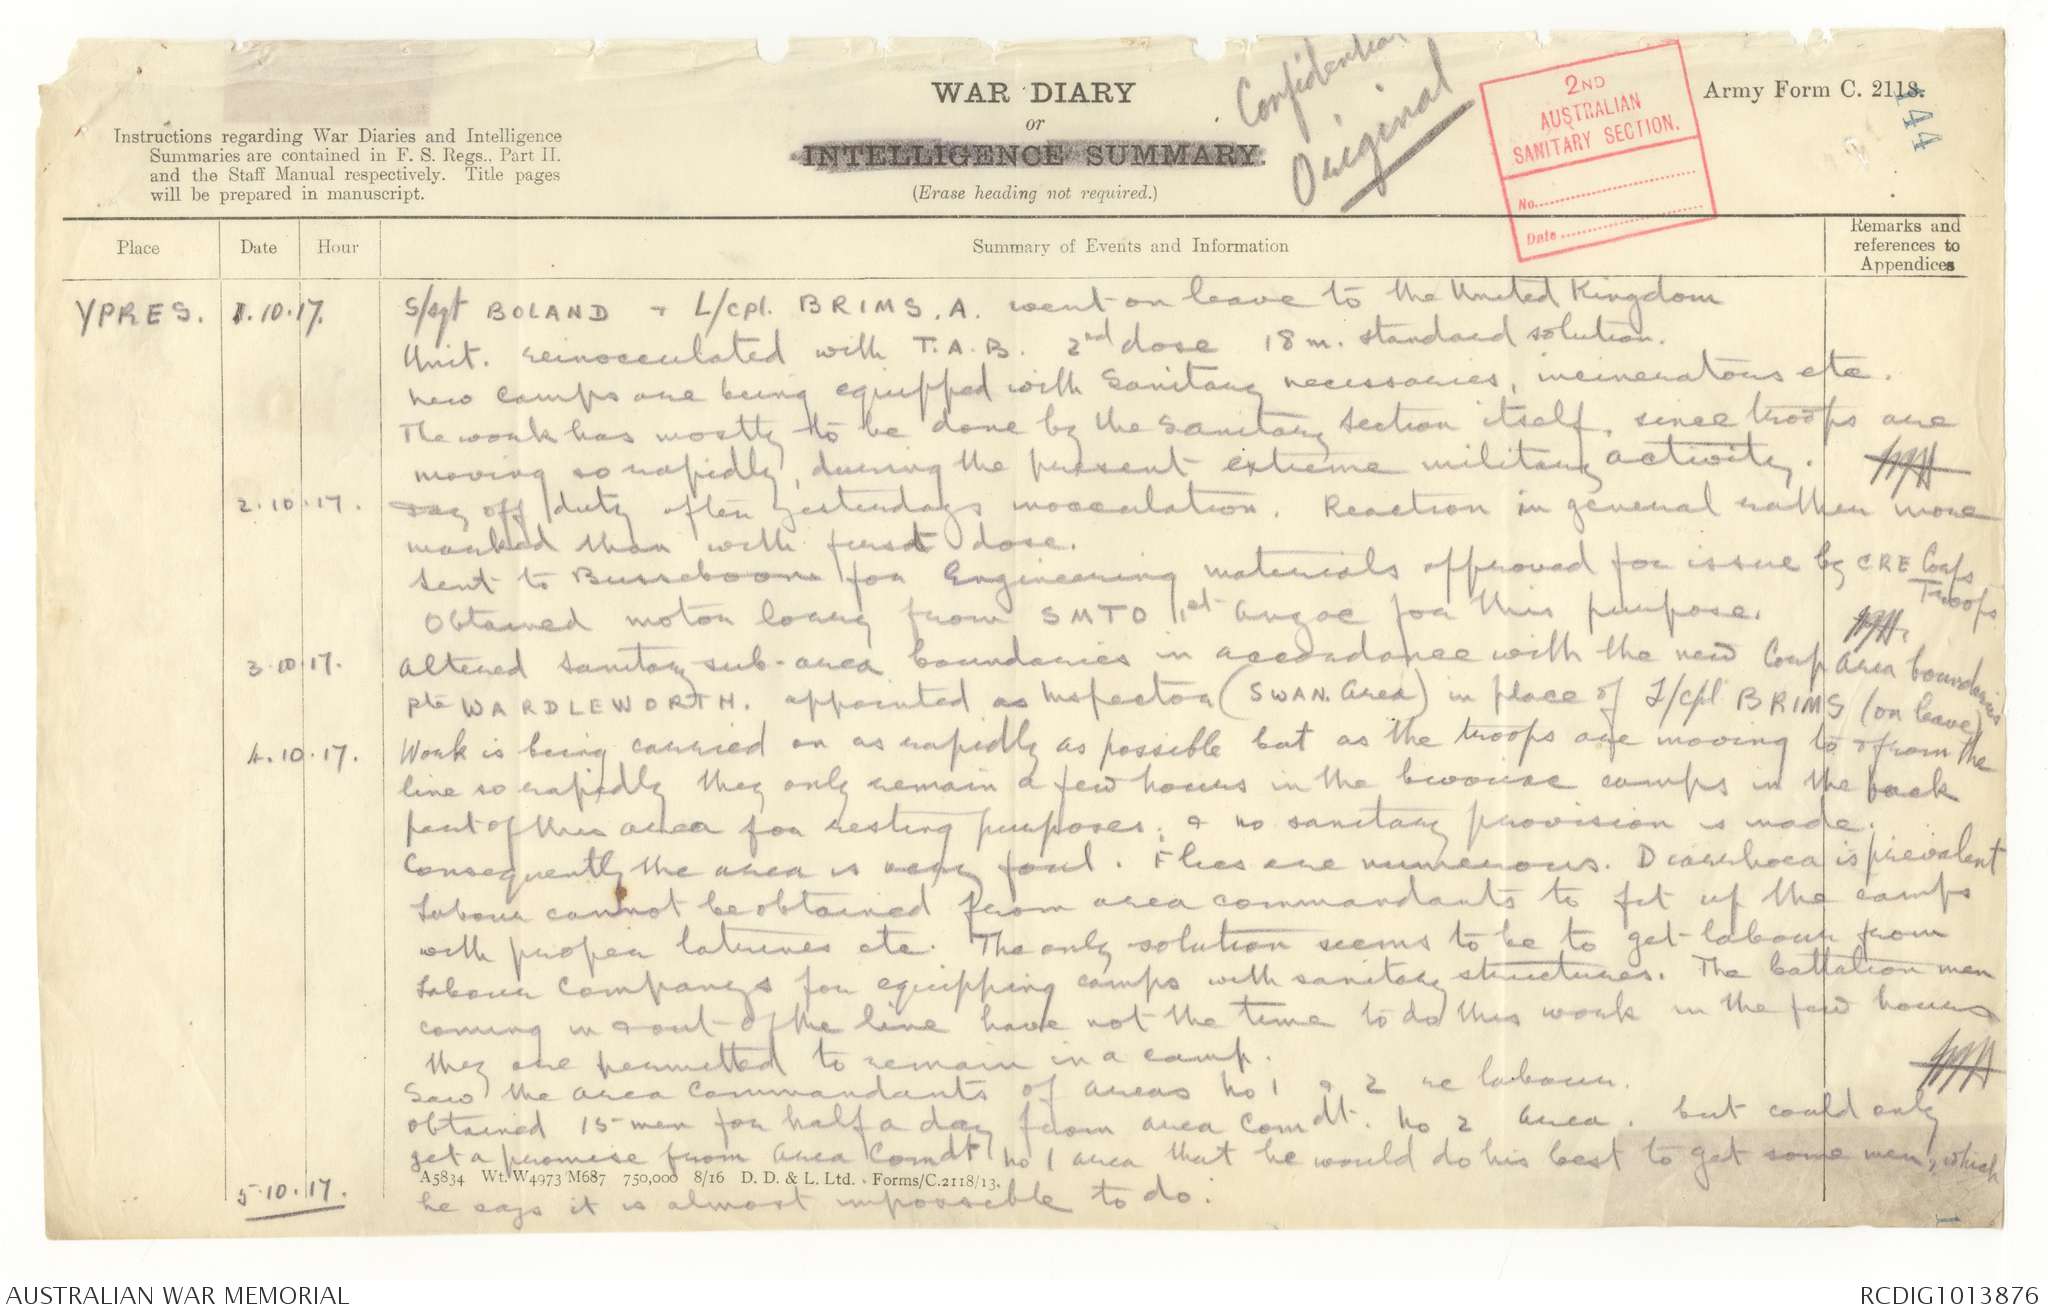 Confidential
Original
2ND
AUSTRALIAN
SANITARY SECTION.
No.
Date
Army Form C. 2118.
144
WAR DIARY
or
INTELLIGENCE SUMMARY.
(Erase heading not required.)
Instructions regarding War Diaries and Intelligence
Summaries are contained in F. S. Regs., Part II.
and the Staff Manual respectively. Title pages
will be prepared in manuscript.
Place Date Hour Summary of Events and Information Remarks and references to Appendices
YPRES. 1.10.17. S/sgt BOLAND + L/cpl. BRIMS. A. went on leave to the United Kingdom
Unit. reinocculated with T.A.B. 2nd dose 18 m. standard solution.
New camps are being equipped with Sanitary necessaries, incinerators etc.
The work has mostly to be done by the Sanitary Section itself, since troops are
moving so rapidly, during the present extreme military activity.
2.10.17. Day off duty after yesterdays inocculation. Reaction in general rather more
marked than with first dose.
Sent to Busseboom for Engineering materials approved for issue by CRE Corps Troops
Obtained motor lorry from SMTO 1st Anzac for this purpose.
3.10.17. Altered sanitary sub-area boundaries in accordance with the new Corp Area boundaries
Pte WARDLEWORTH. appointed as Inspector (SWAN. Area) in place of L/cpl BRIMS (on leave)
4.10.17. Work is being carried on as rapidly as possible but as the troops are moving to & from the
line so rapidly they only remain a few hours in the bivouac camps in the back
part of this area for resting purposes; & no sanitary provision is made.
Consequently the area is very foul. Flies are numerous. Diarrhoea is prevalent
Labour cannot be obtained from area commandants to fit up the camps
with proper latrines etc. The only solution seems to be to get labour from
Labour Companys for equipping camps with sanitary structures. The battalion men
coming in & out of the line have not the time to do this work in the few hours
they are permitted to remain in a camp.
Saw the area commandants of areas No 1 & 2 re labour.
Obtained 15 men for half a day from area Comdt. No 2 area. but could only
get a promise from Area Comdt No 1 area that he would do his best to get some men, which
A5834 Wt. W4973/M687 750,000 8/16 D. D. & L. Ltd. Forms/C.2118/13.
5.10.17. he says it is almost impossible to do.
AUSTRALIAN WAR MEMORIAL
RCDIG1013876